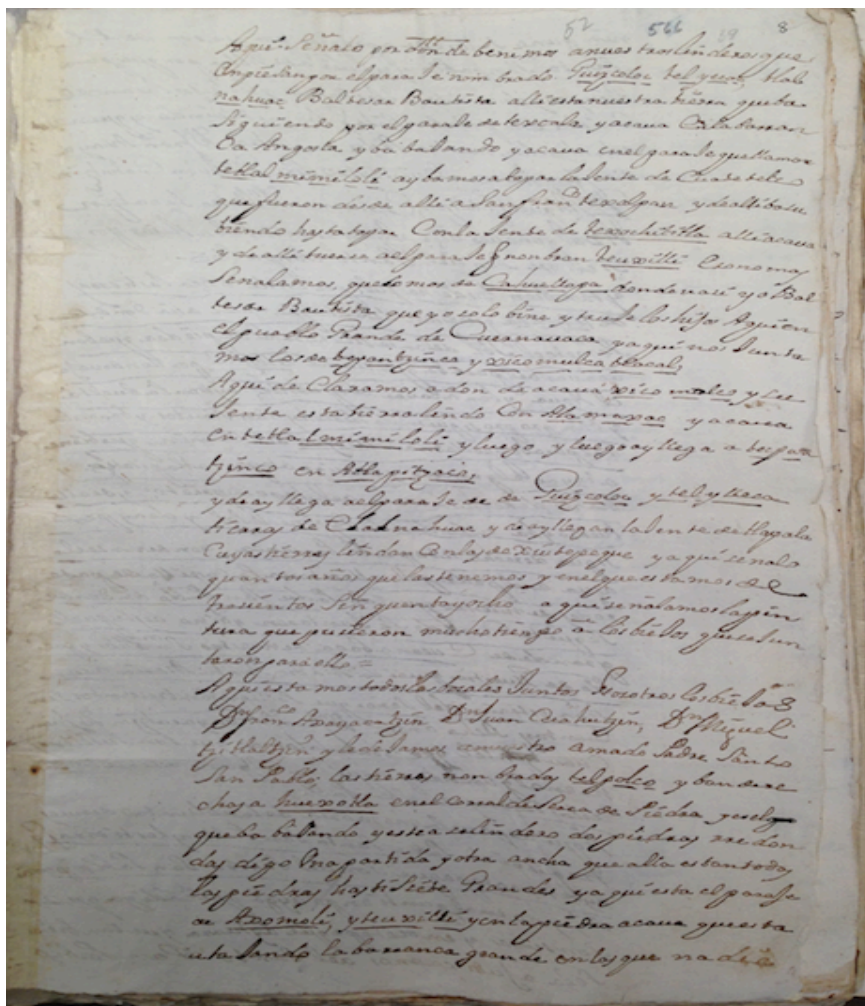 52 566 19 8
Aqui Señalo por donde benimos a nuestros linderos que
enpiesan por el paraje nombrado Quizcoloc telyecac tlal
nahuac Baltesar Bautista alli esta nuestra tierra que ba
Siguiendo por el paraje de texcale y acava en la barran
Ca Angosta y ba bajando y acava en el paraje que llaman
tetlalmimiloli ay bamos a topar la Jente de Cuatetelco
que fueron desde alli a San fran.co texalpan y de alli ba su
biendo hasta topar Con la Jente de texochititla alli acava
y de alli tuerse a el paraje q nonbran teuxilli Eso no mas
Señalamos, que somos de donde naci yo Bal
tesar Bautista que yo solo bine y truje los hijos Aqui en
el pueblo Grande de Cuernavaca y aqui nos Junta
mos los de tzontzinco y xicomulca tlacal,
Aqui de Claramos a don de acava xicomulco y su
Jente esta tierra linda Con Alamaxac y acava
en tetlalmimiloli y luego y luego ay llega a
tzinco en Atlapitzaco,
y de ay llega a el paraje de de Quizcoloc y
ticara de Clalnahuac y de ay llegan la Jente de tlapala
Cuyas tierras lindan Con las de Xiutepeque y aqui señalo
quantos años que las tenemos y en el que estamos de
trosientos Sinquenta y ocho aqui señalamos la pin
tura que pusieron mucho tiempo a los biejos que se Jun
taron para ello =
Aqui estamos todos los bocales Juntos Nosotros los biejos
Dn fran.co Axayacatzin Dn Juan Cuahutzin, Dn Miguel
tzitlaltzin y le dejamos a nuestro amado Padre Santo
San Pablo, las tierras nonbradas telpolco y ban dere
chas a huexotla en el corral de Serca de Piedra y es el
que ba bajando y este a el lindero dos piedras rredon
das digo Una partida y otra ancha que alli estan todas
las piedras hasti Siete Grandes y aqui esta el paraje
de Axomoli, y teuxilli y en la piedra acava que esta
atajando la barranca grande en las que nadie